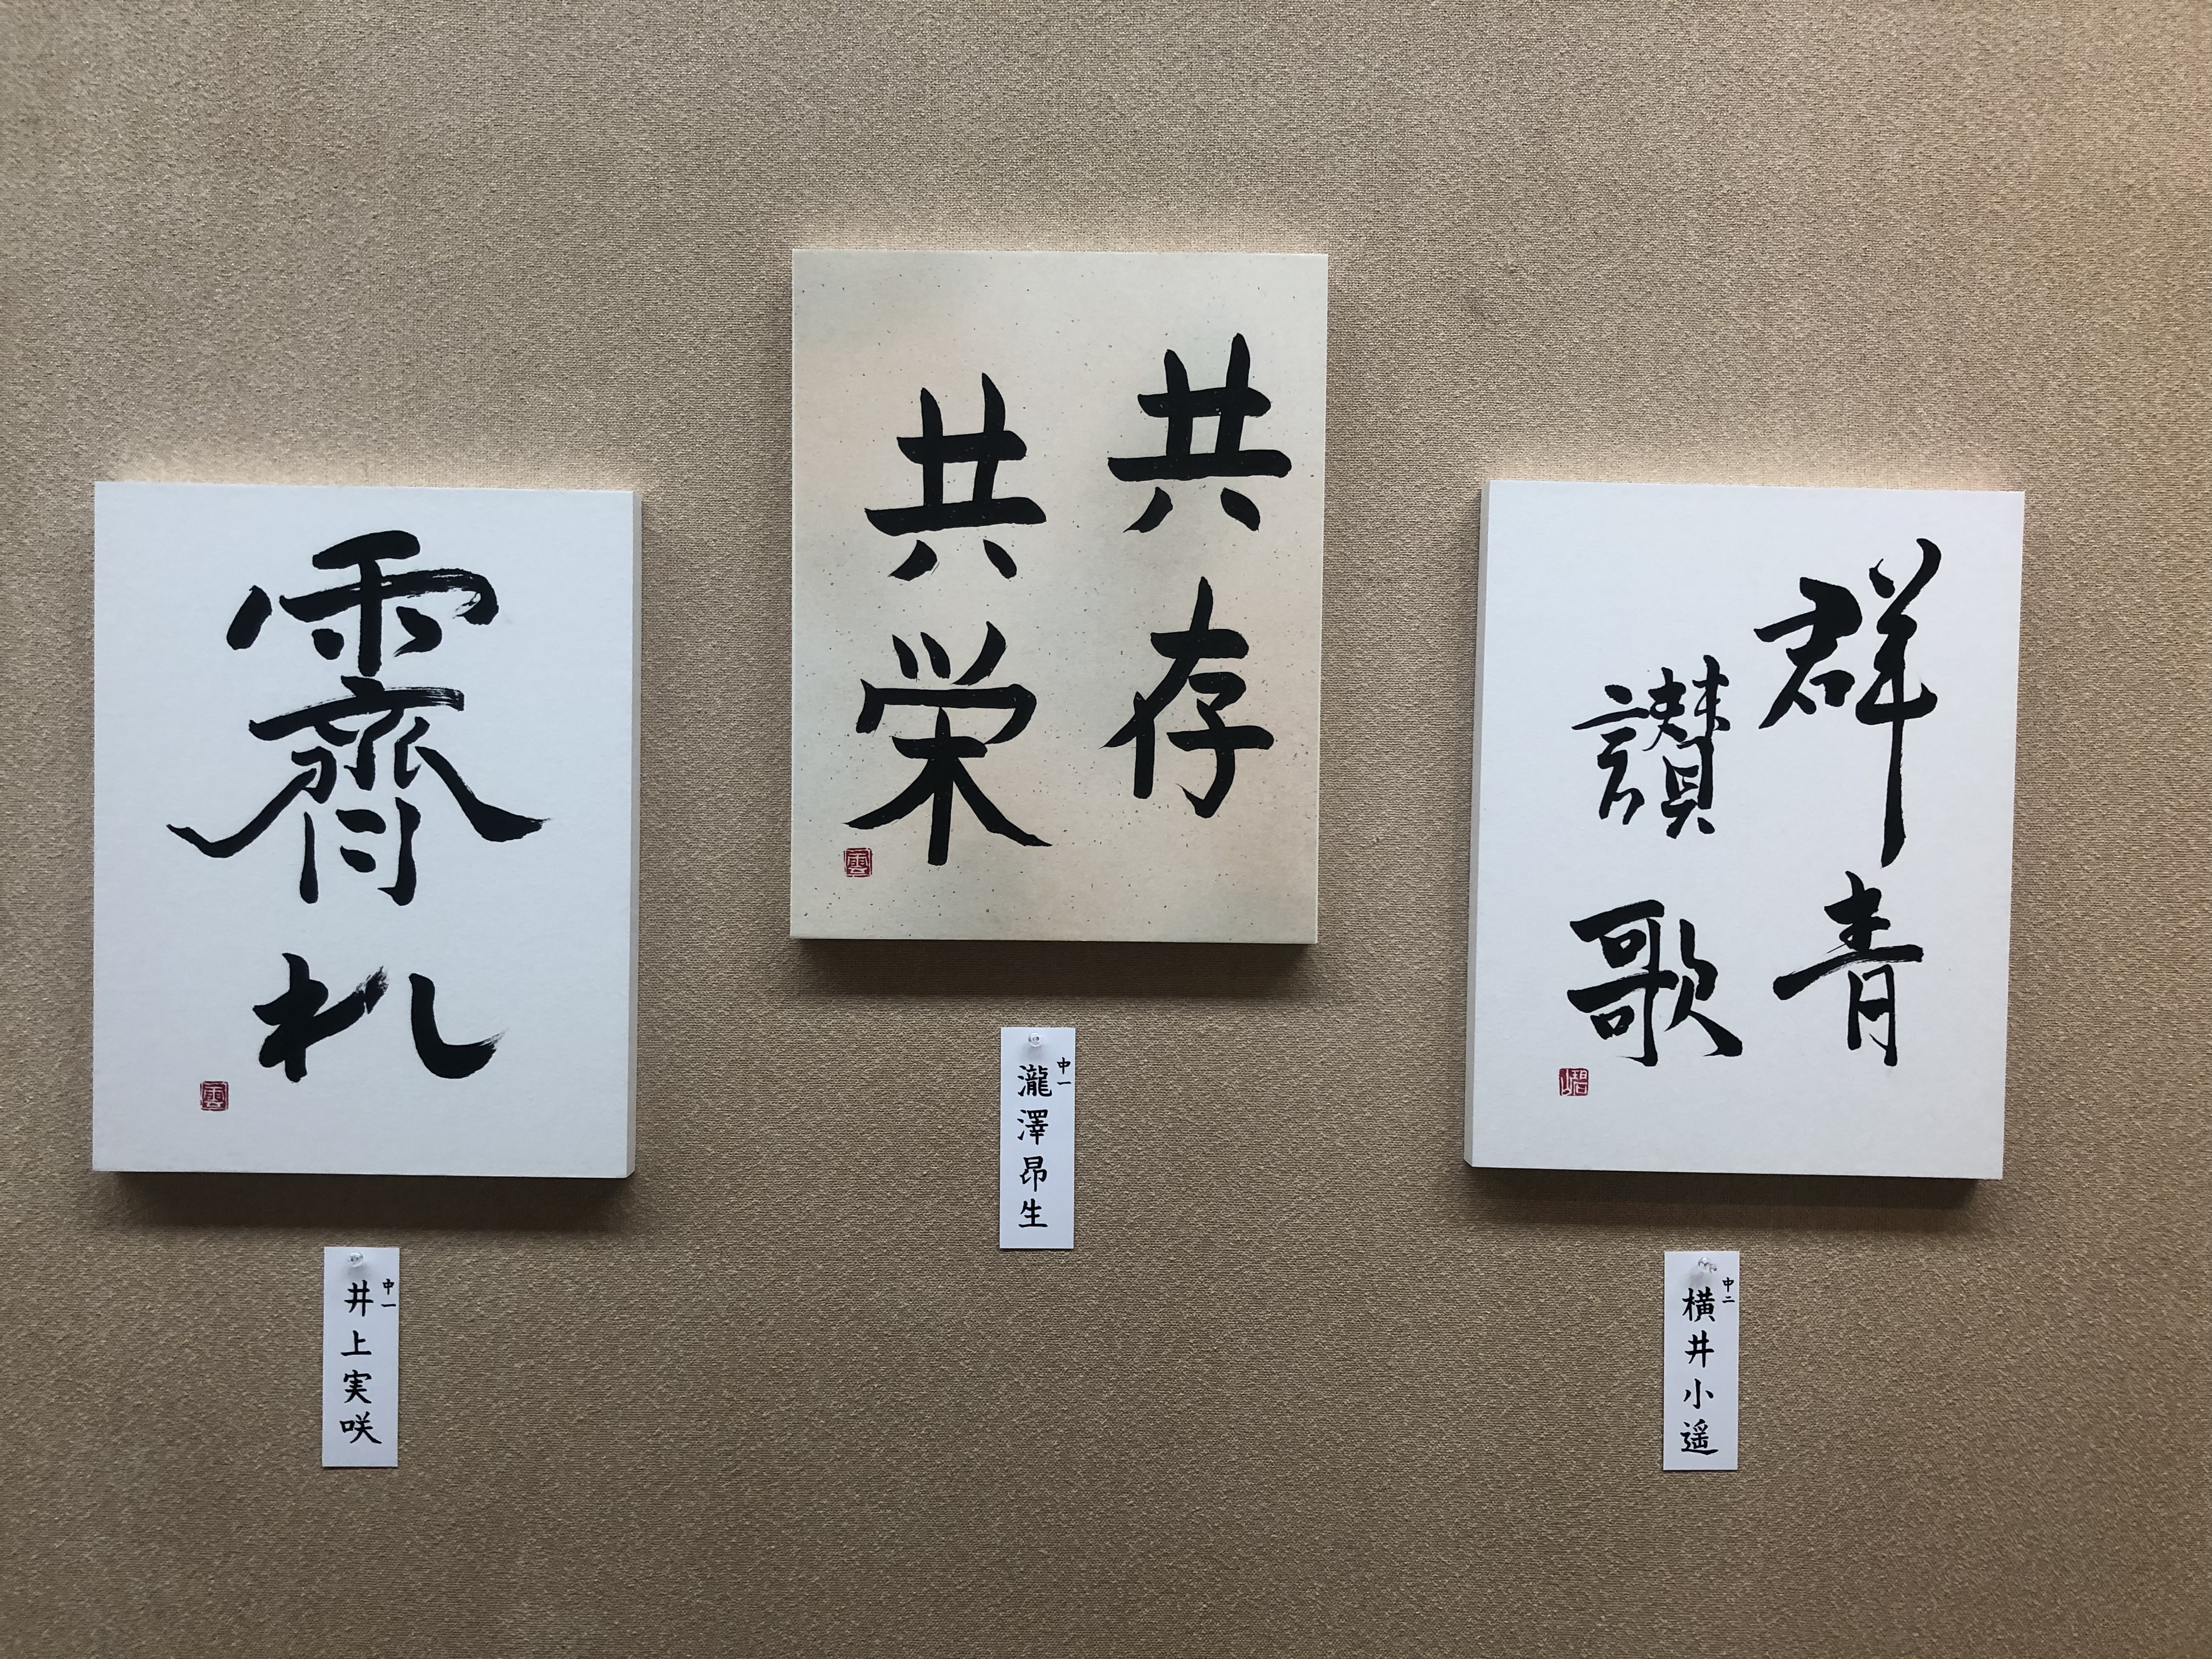 霽れ
中一
井上実咲
共存
共栄
中一
瀧澤昂生
群青
讃歌
中二
横井小遥